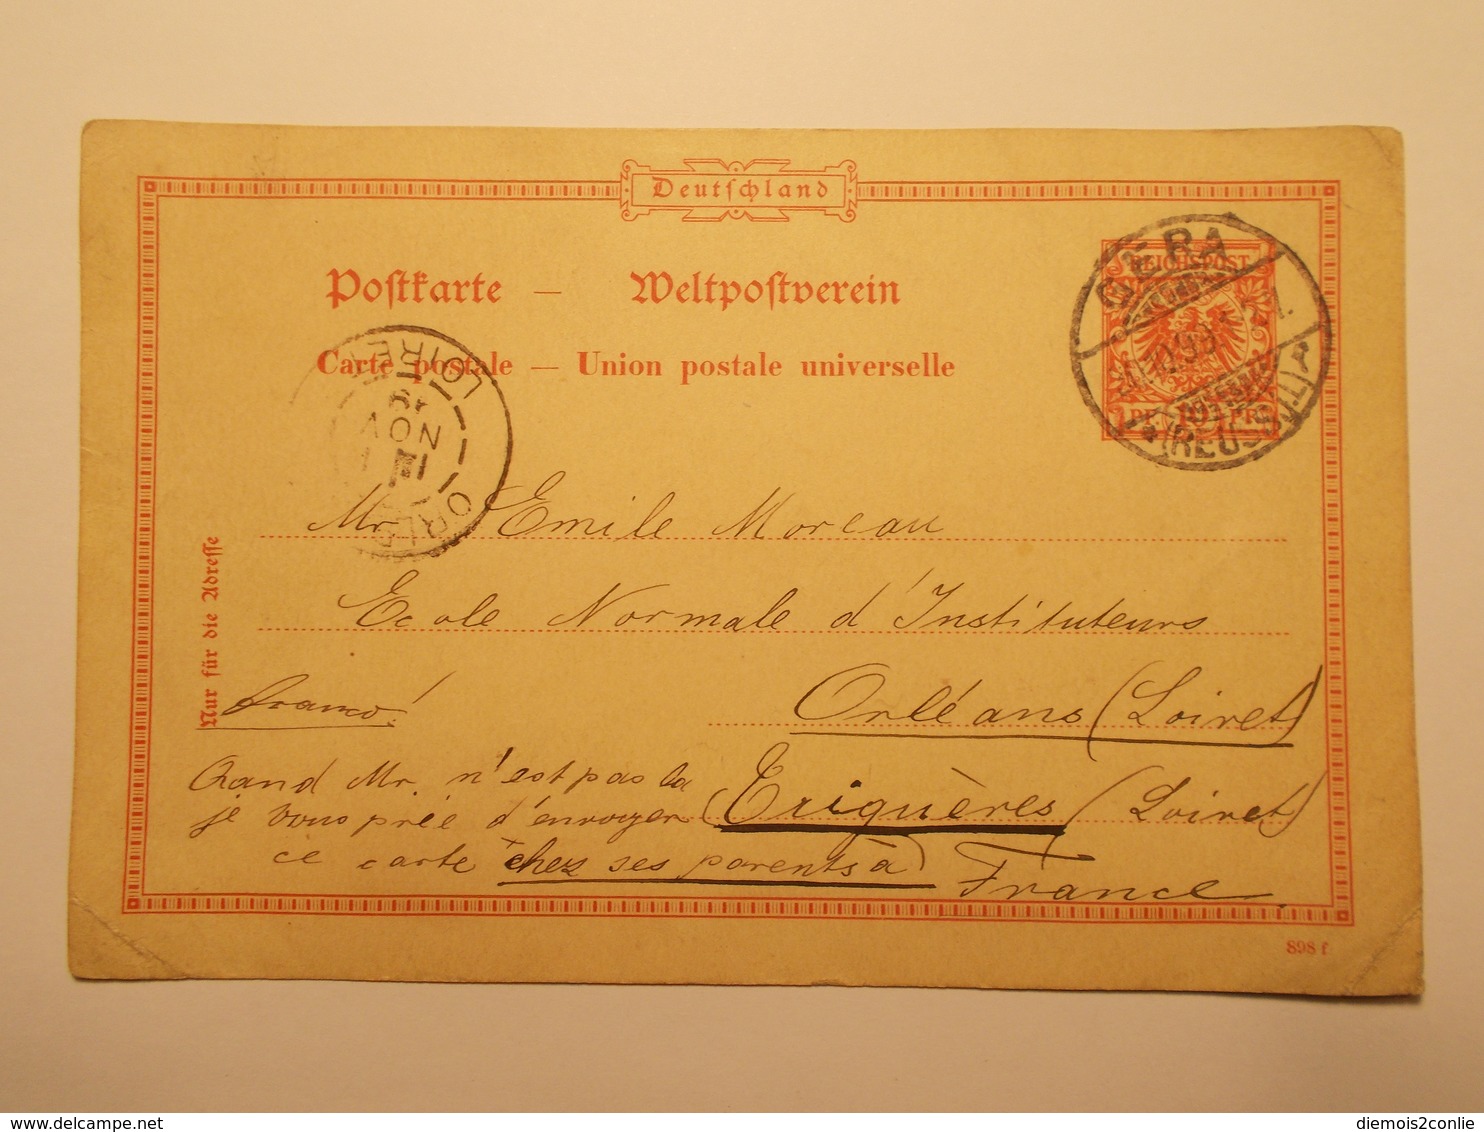 Deutſchland
Poſtkarte — Weltpoſtverein
Carte postale — Union postale universelle
REICHSPOST
GERA
(REUSS J.L.)
LOIRET
NOV
Mr Emile Moreau
Ecole Normale d'Instituteurs
Nur für die Adreſſe
franco!
Orléans (Loiret)
Quand Mr. n'est pas là
je vous prie d'envoyer (Triguères (Loiret)
ce carte chez ses parents à)
France.
898 f
http://www.delcampe.net
diemois2conlie